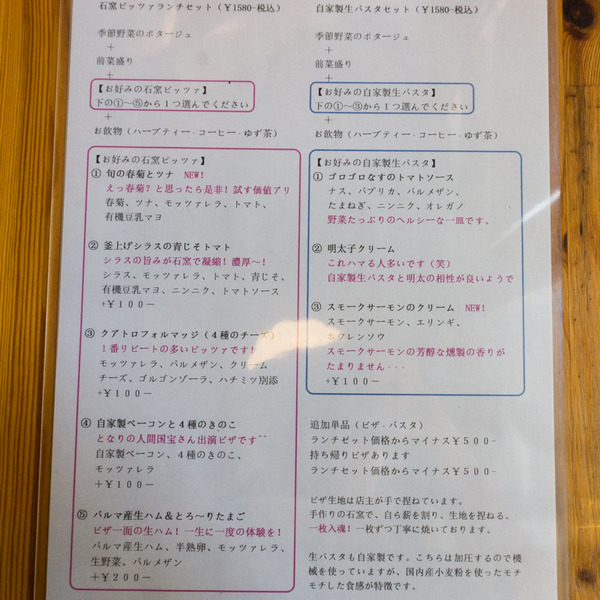 石窯ピッツァランチセット(￥1580-税込)
季節野菜のポタージュ
+
前菜盛り
+
【お好みの石窯ピッツァ】
下の①～⑤から1つ選んでください
+
お飲物（ハーブティー・コーヒー・ゆず茶）
【お好みの石窯ピッツァ】
① 旬の春菊とツナ NEW!
えっ春菊？と思ったら是非！試す価値アリ
春菊、ツナ、モッツァレラ、トマト、
有機豆乳マヨ
② 釜上げシラスの青じそトマト
シラスの旨みが石窯で凝縮！濃厚～！
シラス、モッツァレラ、トマト、青じそ、
有機豆乳マヨ、ニンニク、トマトソース
+￥100－
③ クアトロフォルマッジ（４種のチーズ）
１番リピートの多いピッツァです！
モッツァレラ、パルメザン、クリーム
チーズ、ゴルゴンゾーラ、ハチミツ別添
+￥100－
④ 自家製ベーコンと４種のきのこ
となりの人間国宝さん出演ピザです^^
自家製ベーコン、４種のきのこ、
モッツァレラ
+￥100－
⑤ パルマ産生ハム＆とろ～りたまご
ピザ一面の生ハム！一生に一度の体験を！
パルマ産生ハム、半熟卵、モッツァレラ、
生野菜、パルメザン
＋￥200－
自家製生パスタセット(￥1580-税込)
季節野菜のポタージュ
+
前菜盛り
+
【お好みの自家製生パスタ】
下の①～③から1つ選んでください
+
お飲物（ハーブティー・コーヒー・ゆず茶）
【お好みの自家製生パスタ】
① ゴロゴロなすのトマトソース
ナス、パプリカ、パルメザン、
たまねぎ、ニンニク、オレガノ
野菜たっぷりのヘルシーな一皿です。
② 明太子クリーム
これハマる人多いです（笑）
自家製生パスタと明太の相性が良いようで
③ スモークサーモンのクリーム NEW!
スモークサーモン、エリンギ、
ホウレンソウ
スモークサーモンの芳醇な燻製の香りが
たまりません・・・
+￥100－
追加単品（ピザ・パスタ）
ランチセット価格からマイナス￥500－
持ち帰りピザあります
ランチセット価格からマイナス￥500－
ピザ生地は店主が手で捏ねています。
手作りの石窯で、自ら薪を割り、生地を捏ねる。
一枚入魂！一枚ずつ丁寧に焼いております。
生パスタも自家製です。こちらは加圧するので機
械を使っていますが、国内産小麦粉を使ったモチ
モチした食感が特徴です.